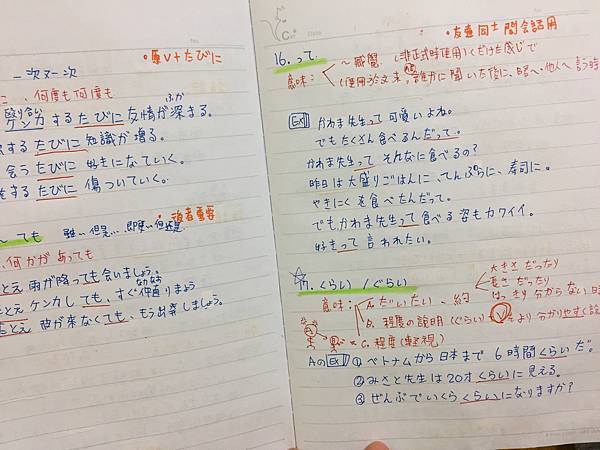 ・原V+たびに
一次又一次
、何度も何度も
ケンカするたびに友情が深まる。
するたびに知識が増る。
会うたびに 好きになていく。
をするたびに 傷ついていく。
〜ても 雖い但是… 即使い但還是 ・後者重要
、何かが あっても
とえ 雨が降っても会いましょう。
とえ ケンカしても、すぐ仲直りましょう
とえ 曲が来なくても、もう出発しましょう。
・友達同士間会話用
16. って.
意味: 〜感覺 (非正式時使用)だけを感じで
Ex かわま先生って可愛いよね。
でもたくさん食べるんだって。
かわま先生って そんなに食べるの?
昨日は大盛りごはんに、てんぷらに、寿司に。
やきにくも食べたんだって。
でもかわま先生って食べる姿もカワイイ。
好きって言われたい。
17. くらい/ぐらい
大きさ だったり
長さ だったり
はっきり分からない時
意味: A. だいたい、約
B. 程度の説明(ぐらい)
C. 程度(軽視)
Aの Ex ①ベトナムから日本まで 6時間くらいだ。
②みさと先生は20才くらいに見える。
③ぜんぶでいくらくらいになりますか?